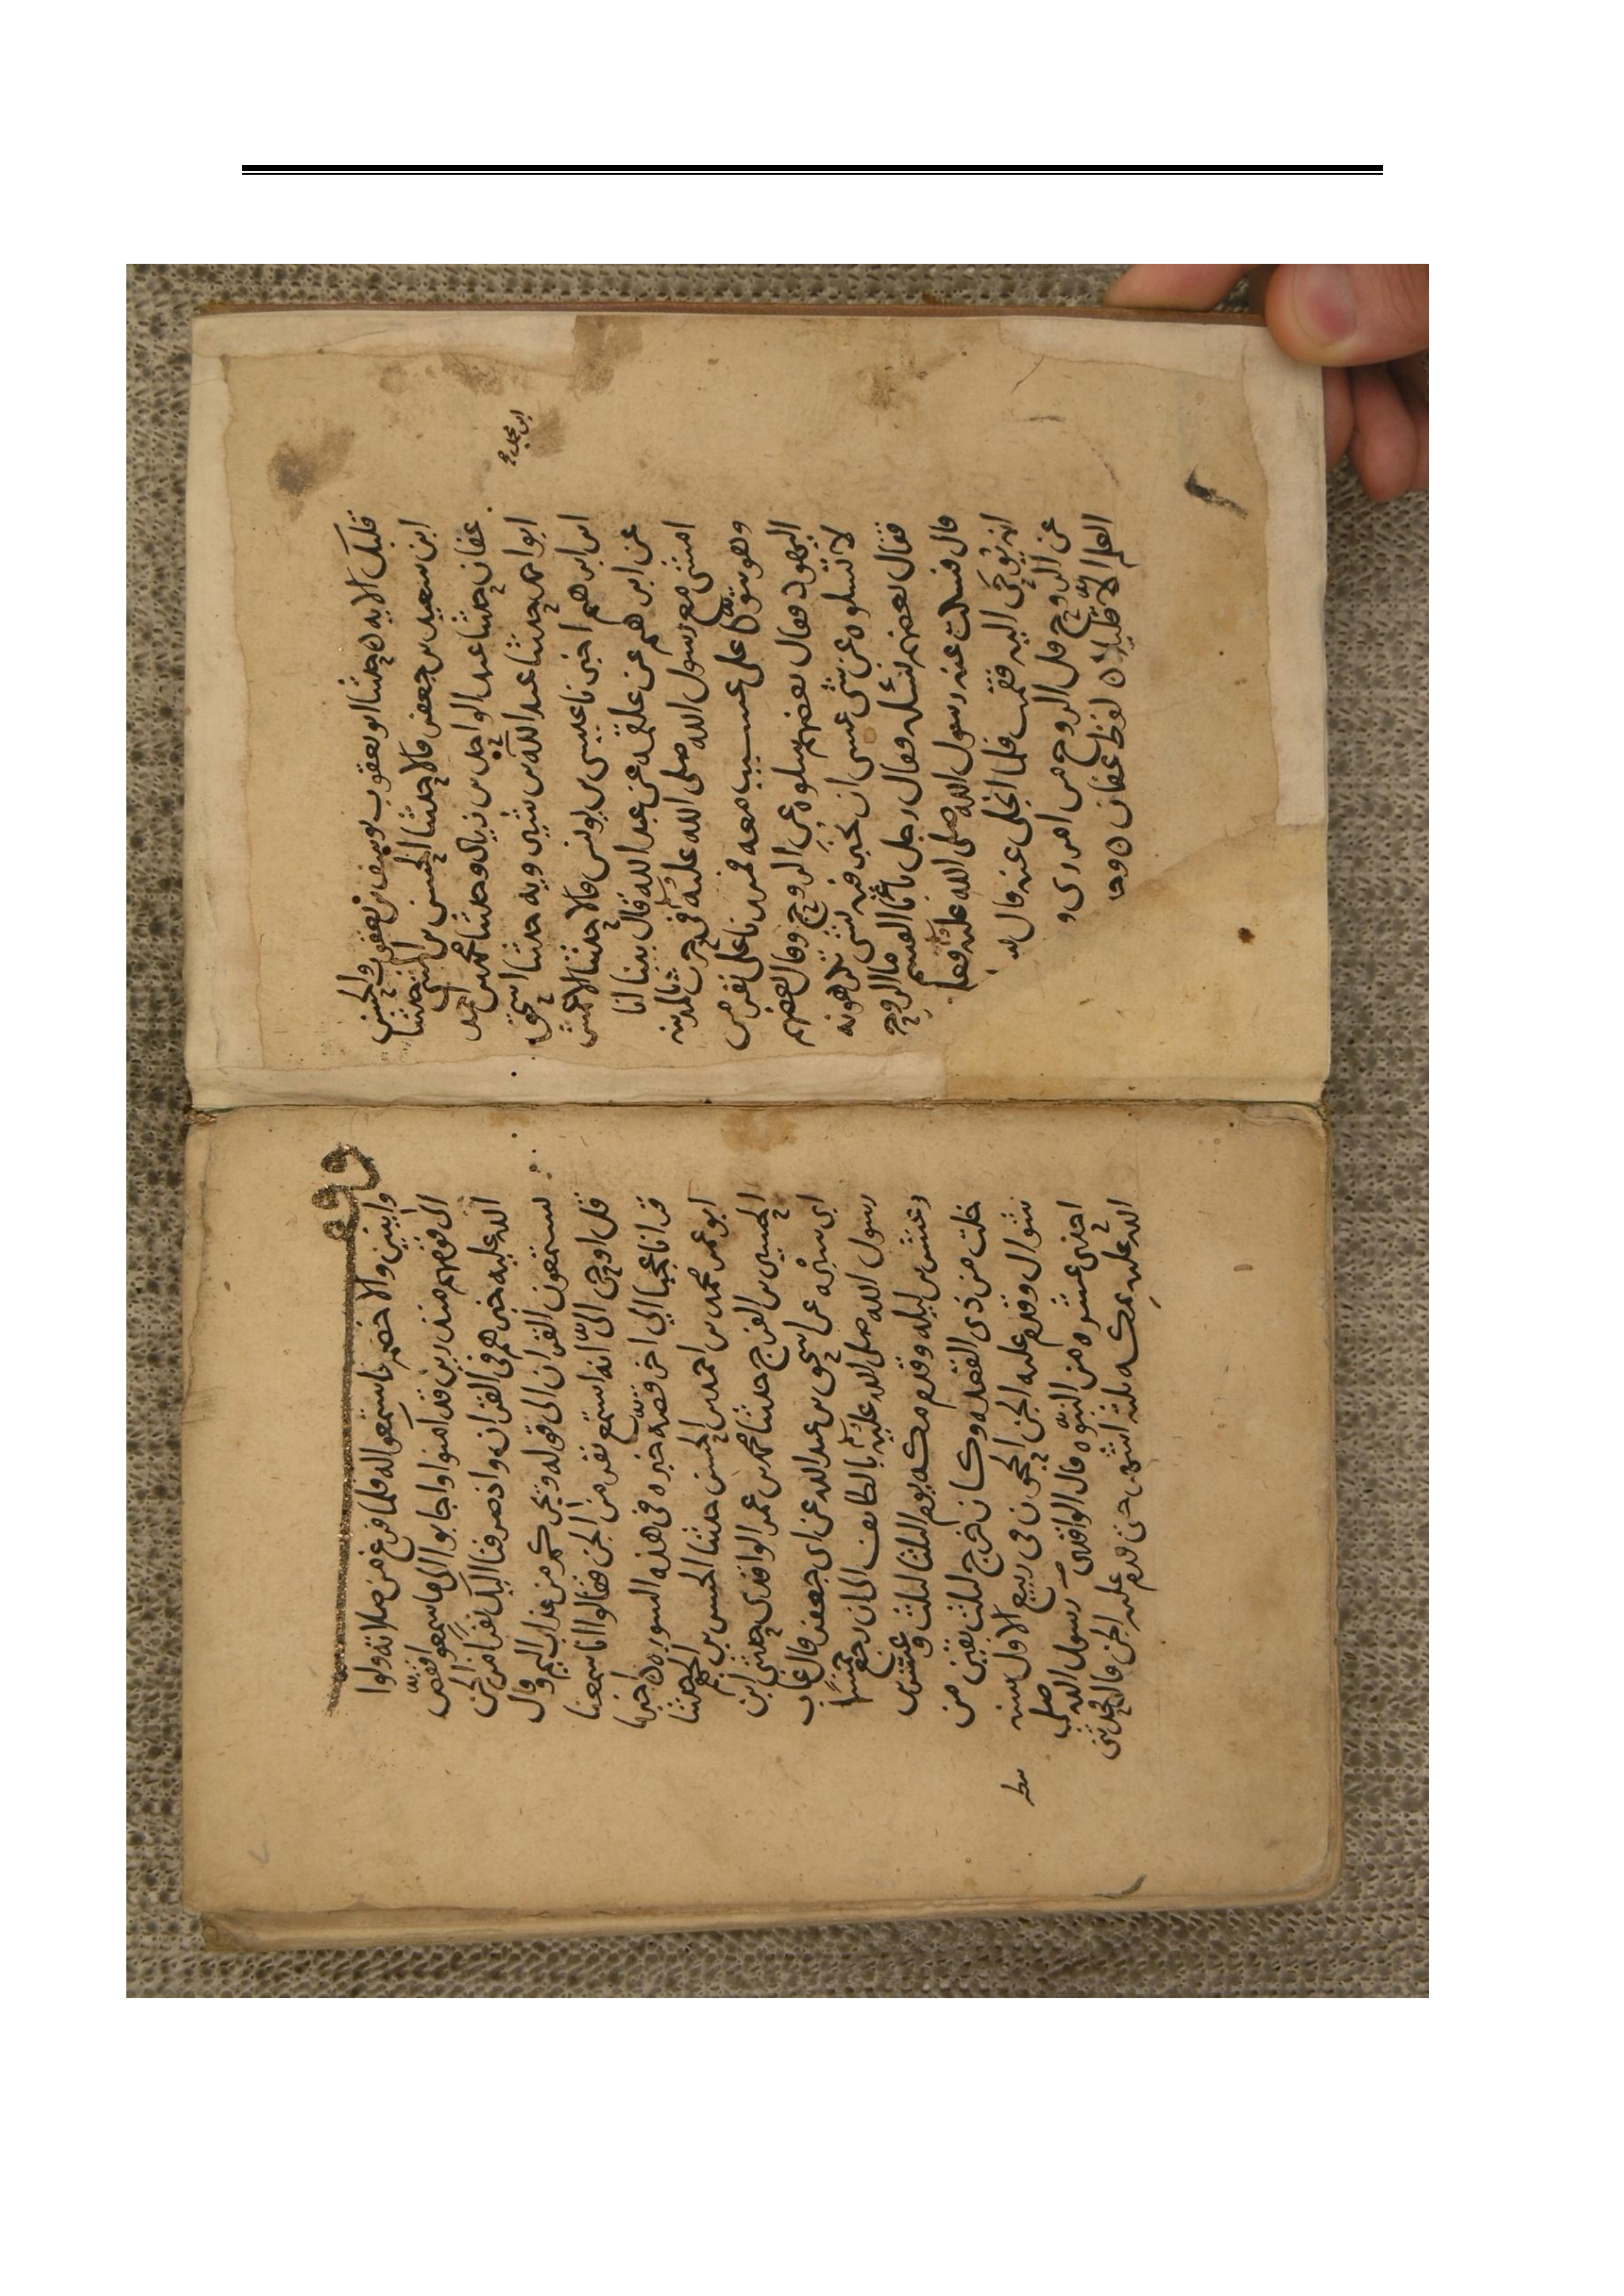 قلبك الايه حدثنا ابو يعقوب يوسف بن يعقوب والحسن
ابن سعيد بن جعفر قالا حدثنا الحسن بن المثنى حدثنا
عفان حدثنا عبد الواحد بن زياد وحدثنا محمد بن احمد
ابو احمد حدثنا عبد الله بن شيرويه حدثنا اسحق
ابن ابرهيم اخبرنا عيسى بن يونس قالا حدثنا الاعمش
عن ابرهيم عن علقمه عن عبد الله قال بينا انا
امشي مع رسول الله صلى الله عليه وسلم في حرث بالمدينه
وهو يتوكا على عسيب معه فمررنا على نفر من
اليهود فقال بعضهم سلوه عن الروح وقال بعضهم
لا تسلوه عن شى عسى ان يخبر فيه بشى تكرهونه
فقال بعضهم لنسئله فقال رجل يا ابا القسم ما الروح
قال فسكت عنه رسول الله صلى الله عليه وسلم
انه يوحى اليه فقمت فلما انجلى عنه قال
عن الروح قل الروح من امر ربي و
العلم الا قليلا لفظ عفان
واثنين والاخضر فاستمعوا له فلما فرغ من صلاته ولوا
الى قومهم منذرين قد امنوا واجابوا الى ما سمعوا فقص
الله عليه خبرهم في القران واذ صرفنا اليك نفرا من الجن
يستمعون القران الى قوله ويجركم من عذاب اليم وقال
قل اوحي الي انه استمع نفر من الجن فقالوا انا سمعنا
قرانا عجبا الى اخر قصة خبره في هذه السوره اخبرنا
ابو عمر محمد بن احمد بن الحسن حدثنا الحسن بن الجهم حدثنا
الحسين بن الفرج حدثنا محمد بن عمر الواقدي حدثني ابن
ابي سبره عن اسحق بن عبد الله عن ابي جعفر قال غاب
رسول الله صلى الله عليه وسلم بالطائف الى ان رجع خمسا
وعشرين ليله وقدم مكه يوم الثلثا لثلث وعشرين
خلت من ذي القعده وكان خرج لثلث بقين من
شوال وقدم عليه الجن الحجون في ربيع الاول سنه
احدى عشره من النبوه قال الواقدي رسول الله صلى
الله عليه بمكه ثلثه اشهر حتى قدم عليه الجن قال وحدثني